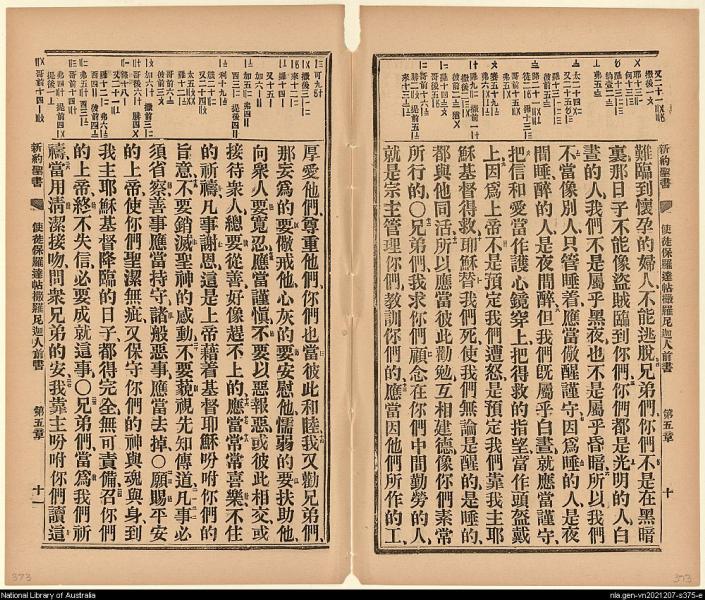 難臨到懷孕的婦人不能逃脫兄弟們、你們不是在黑暗
裏那日子不能像盜賊臨到你們你們都是光明的人白
晝的人我們不是屬乎黑夜也不是屬乎昏暗所以我們
不當像別人只管睡着應當儆醒謹守因爲睡的人是夜
間睡醉的人是夜間醉但我們旣屬乎白晝就應當謹守、
把信和愛當作護心鏡穿上把得救的指望當作頭盔戴
上因爲上帝不是預定我們遭怒是預定我們靠我主耶
穌基督得救耶穌替我們死使我們無論是醒的是睡的
都與他同活所以應當彼此勸勉互相建德像你們素常
所行的○兄弟們我求你們顧念在你們中間勤勞的人、
就是宗主管理你們教訓你們的、應當因他們所作的工、
新約聖書 使徒保羅達帖撒羅尼迦人前書 第五章 十
厚愛他們、尊重他們、你們也當彼此和睦我又勸兄弟們
那妄爲的要儆戒他心灰的要安慰他懦弱的要扶助他、
向衆人要寬忍應當謹愼不要以惡報惡或彼此相交或
接待衆人總要從善好像趕不上的、應當常常喜樂不住
的祈禱凡事謝恩這是上帝藉着基督耶穌吩咐你們的
旨意不要銷滅聖神的感動不要藐視先知傳道凡事必
須省察善事應當持守諸般惡事應當去掉○願賜平安
的上帝使你們聖潔無疵又保守你們的神與魂與身到
我主耶穌基督降臨的日子都得完全無可責備召你們
的上帝終不失信必要成就這事○兄弟們當爲我們祈
禱當用清潔接吻問衆兄弟的安我靠主吩咐你們讀這
新約聖書 使徒保羅達帖撒羅尼迦人前書 第五章 十一
373
373
National Library of Australia
nla.gen-vn2021207-s375-e